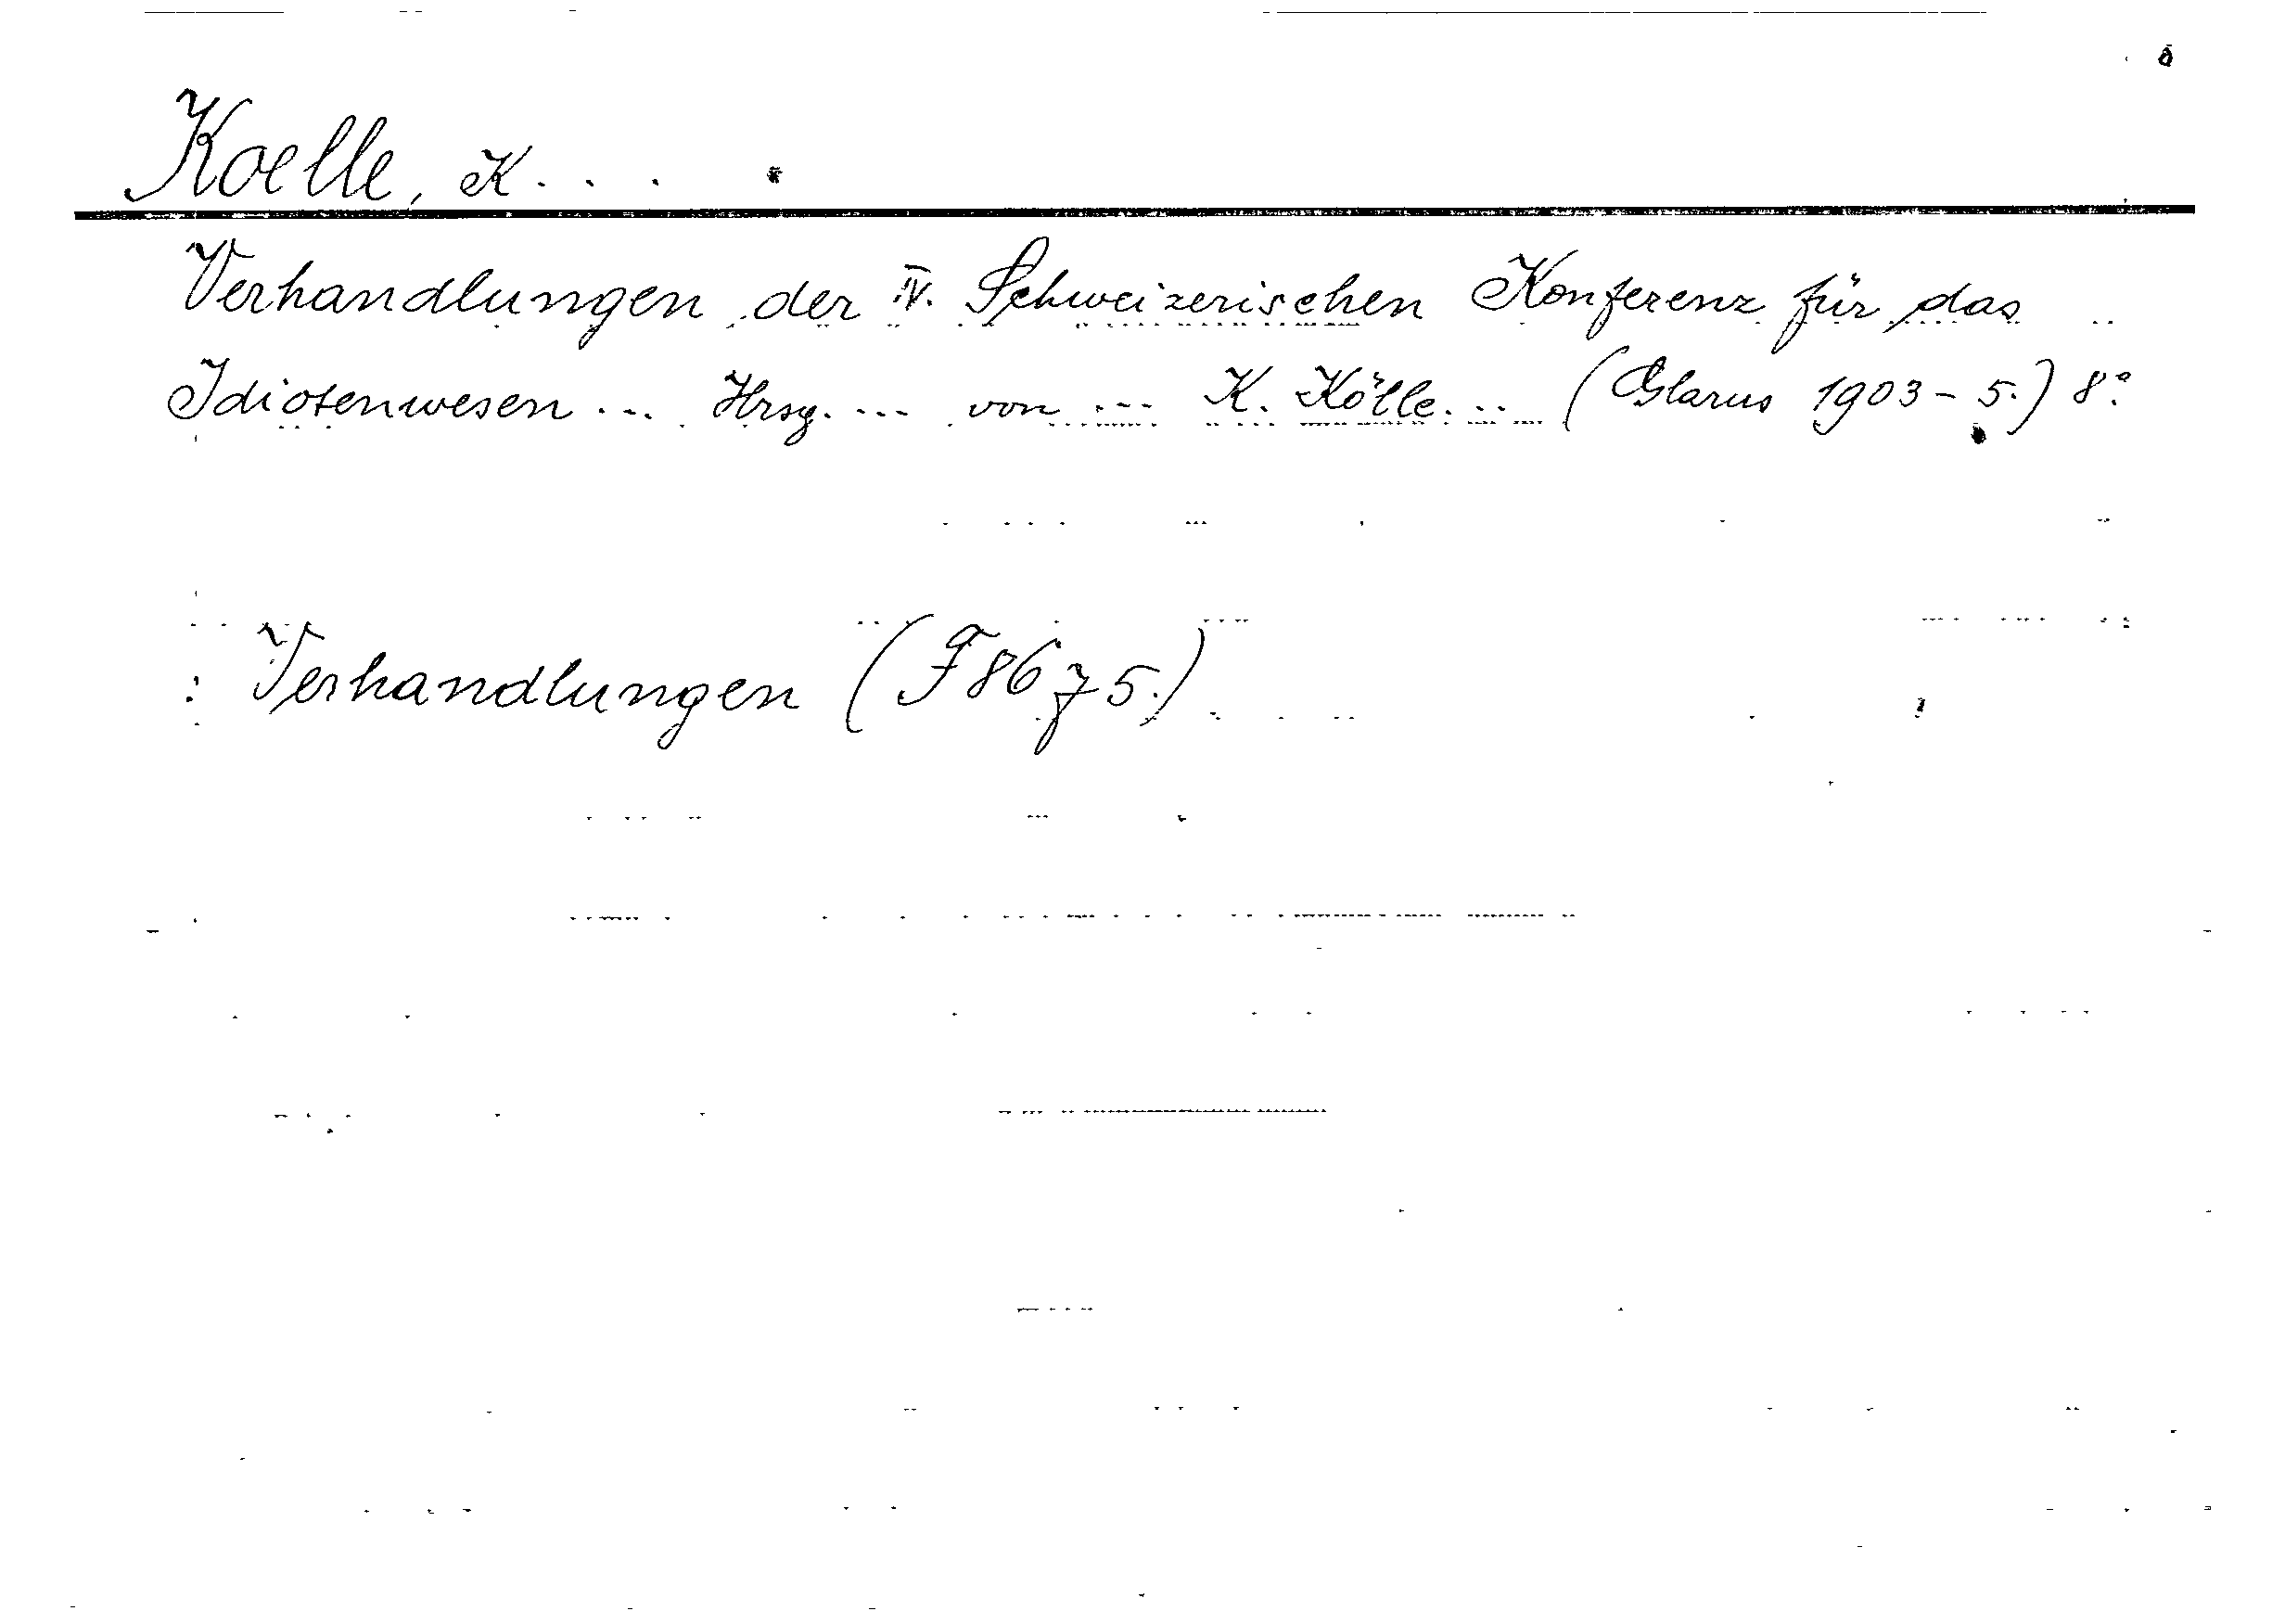 Koelle, K. . . .
Verhandlungen der IV. Schweizerischen Konferenz für das
Idiotenwesen ... Hrsg. ... von ... K. Kölle. ... (Glarus 1903-5.) 8°.
: Verhandlungen (F8675.)